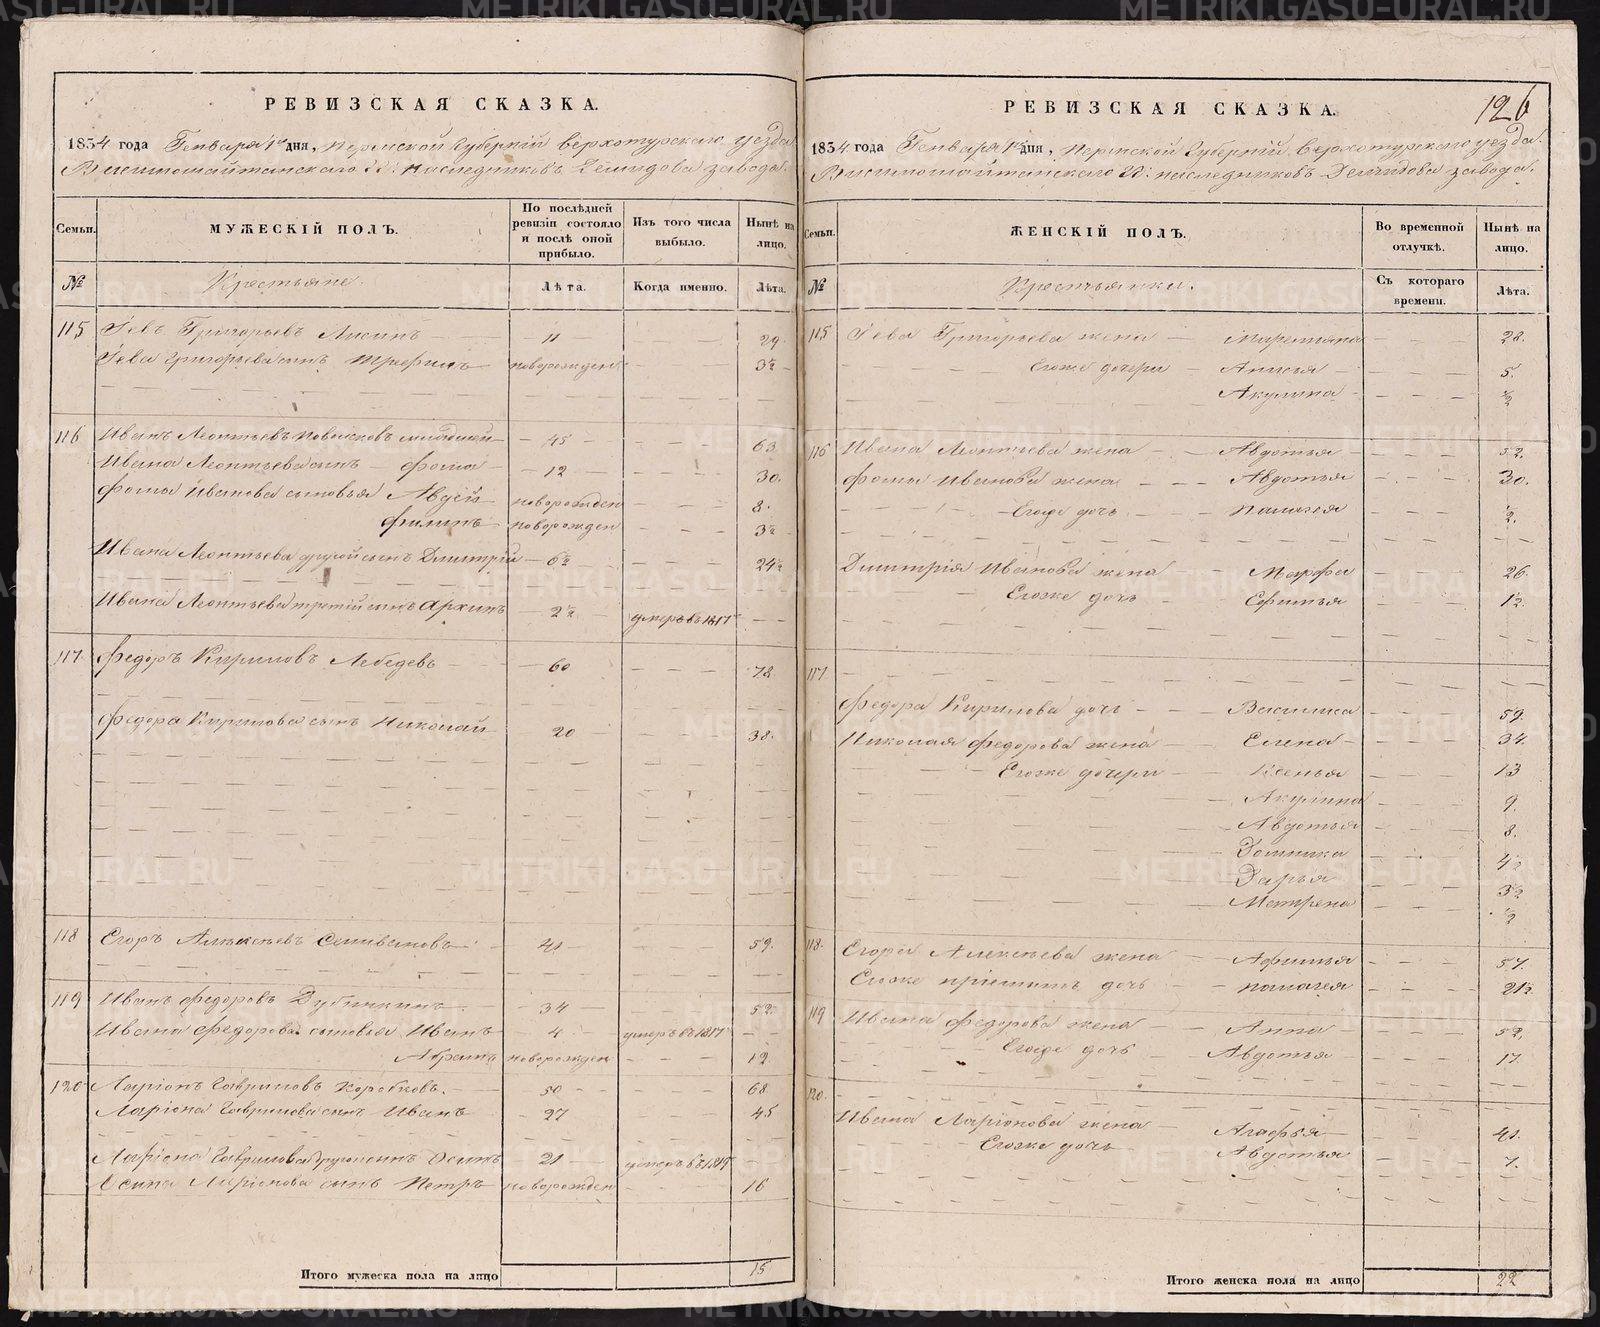 РЕВИЗСКАЯ СКАЗКА.
1834 года Генваря 1 го дня, Пермской Губернiи верхотурскаго уезда
Висимошайтанскаго Н: наследниковъ Демидова завода.
Семьи.
МУЖЕСКIЙ ПОЛЪ.
По послѣдней ревизiи состояло и послѣ оной прибыло.
Изъ того числа выбыло.
Нынѣ на лицо.
№
Крестьяне.
Лѣта.
Когда именно.
Лѣта.
115 Григорьевъ Лисинъ 11 29.
Григорьева сынъ Трофимъ новорожден 3½
116 Иванъ Леонтьевъ младший 45 63.
Ивана Леонтьева сынъ Фома 12 30.
Фомы Иванова сыновья Авдей новорожден 8.
Филипъ новорожден 3½
Ивана Леонтьева другой сынъ Дмитрiй 6½ 24½
Ивана Леонтьева третiй сынъ Архипъ 2½ умеръ въ 1817
117 Федоръ Кириловъ Лебедевъ 60 78
Федора Кирилова сынъ Николай 20 38.
118 Егоръ Алексѣевъ Селивановъ 41 59.
119 Иванъ Федоровъ Дубинкинъ 34 52
Ивана Федорова сыновья Иванъ 4 умеръ въ 1817
Абрамъ новорожден 12
120 Ларiонъ Гавриловъ Коробковъ. 50 68
Ларiона Гаврилова сынъ Иванъ 27 45
Ларiона Гаврилова другой сынъ Осипъ 21 умеръ въ
Осипа Ларiонова сынъ Петръ новорожден 16
Итого мужеска пола на лицо 15
126
РЕВИЗСКАЯ СКАЗКА.
1834 года Генваря 1 го дня, Пермской Губернiи верхотурскаго уезда.
Висимошайтанскаго Н: наследниковъ Демидова завода.
Семьи.
ЖЕНСКIЙ ПОЛЪ.
Во временной отлучкѣ.
Нынѣ на лицо.
№
Крестьянки.
Съ котораго времени.
Лѣта.
115 Григорьева жена Маремьяна 28.
Егоже дочери Анисья 5.
Акулина ½
116 Ивана Леонтьева жена Авдотья 52.
Фомы Иванова жена Авдотья 30.
Егоже дочь Палагея ½.
Димитрiя Иванова жена Марфа 26.
Егоже дочь Софитья 1½.
117
Федора Кирилова дочь Василиса 59.
Николая Федорова жена Елена 34.
Егоже дочери Ксенья 13
Акулина 9.
Авдотья 8.
Домника 4½
Дарья 3½
Матрена ½
118. Егора Алексѣева жена Афимья 57.
Егоже прiимышъ дочь Палагея 21½.
119 Ивана Федорова жена Анна 52,
Егоже дочь Авдотья 17.
120.
Ивана Ларiонова жена Агафья 41.
Егоже дочь Авдотья 7.
Итого женска пола на лицо 22
METRIKI.GASO-URAL.RU